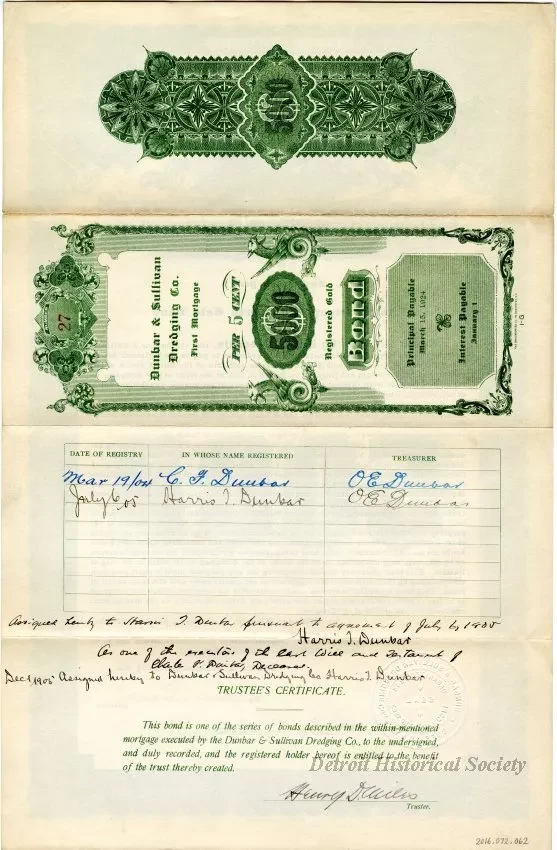 5000
27
Dunbar & Sullivan
Dredging Co.
First Mortgage
PER 5 CENT
5000
Registered Gold
Bond
Principal Payable
March 15, 1924
Interest Payable
January 1
DATE OF REGISTRY IN WHOSE NAME REGISTERED TREASURER
Mar 19/04 C. F. Dunbar OE Dunbar
July 6/05 Harris T. Dunbar OE Dunbar
Assigned hereby to Harris T. Dunbar pursuant to agreement of July 6, 1905
Harris T. Dunbar
As one of the executors of the last Will and Testament of
Deceased
Dec 1905 Assigned hereby to Dunbar & Sullivan Dredging Co Harris T. Dunbar
TRUSTEE'S CERTIFICATE.
This bond is one of the series of bonds described in the within-mentioned
mortgage executed by the Dunbar & Sullivan Dredging Co., to the undersigned,
and duly recorded, and the registered holder hereof is entitled to the benefit
of the trust thereby created.
Detroit Historical Society
Henry
Trustee.
2016.072.062